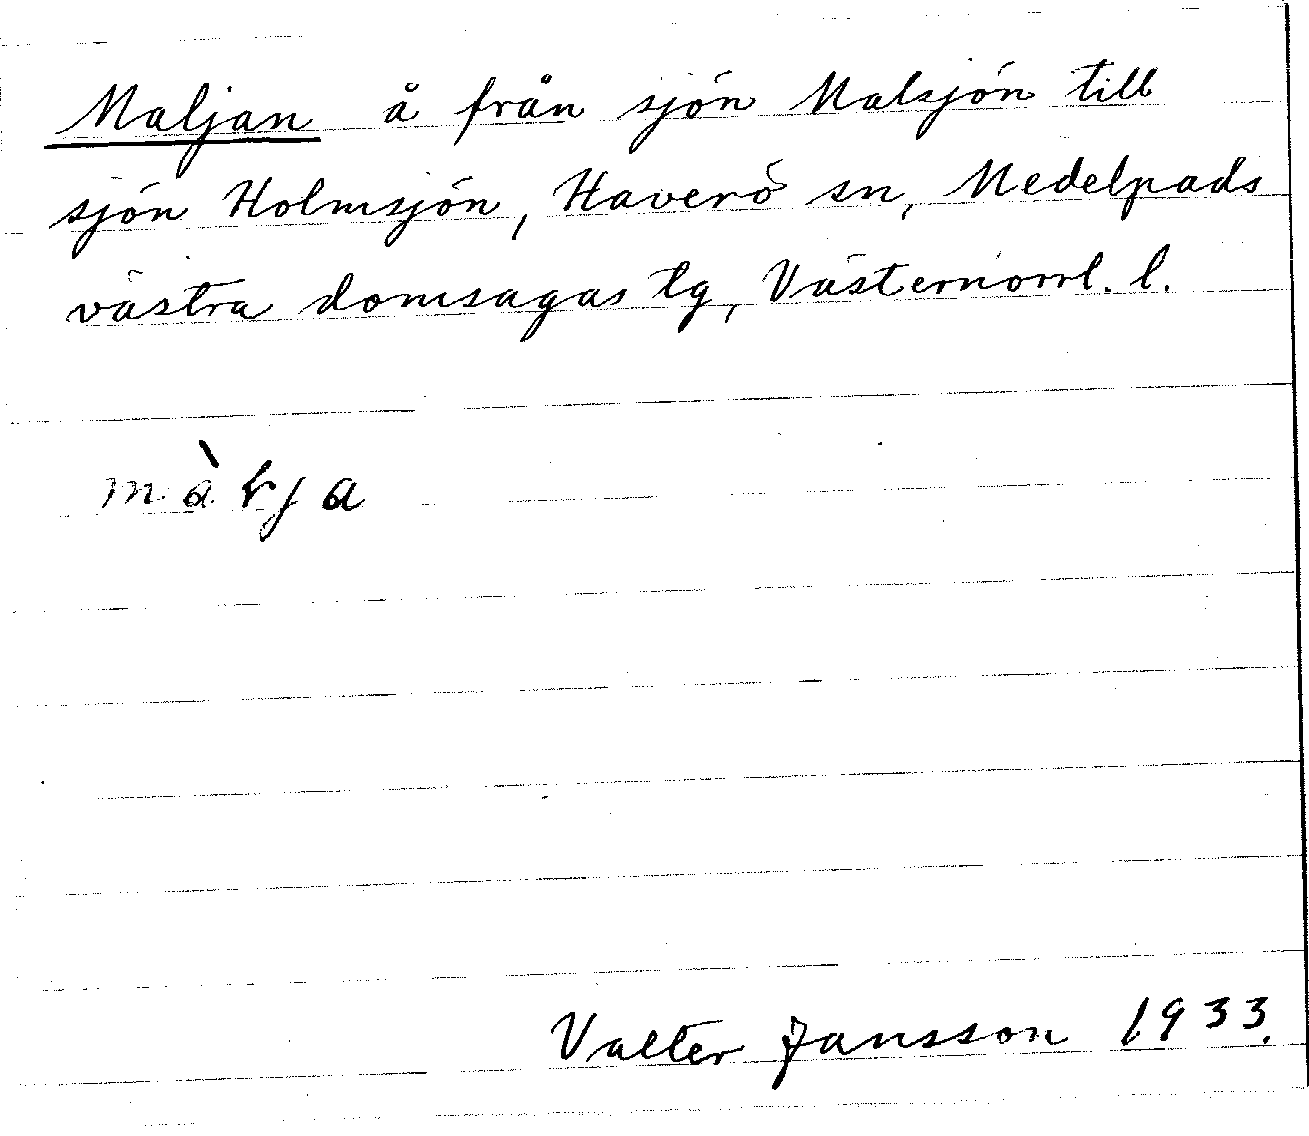 Maljan å från sjön Malsjön till
sjön Holmsjön, Haverö sn, Medelpads
västra domsagas tg, Västernorrl. l.
Valter Jansson 1933.